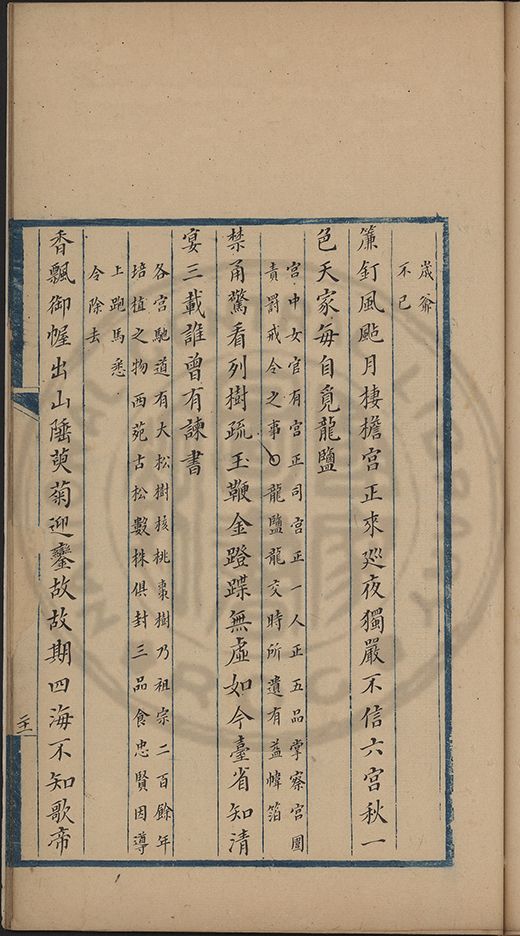 歲爺
不已
簾釘風颭月棲檐宫正來廵夜獨嚴不信六宫秋一
色天家每自覓龍鹽
宫中女官有宫正司宫正一人正五品掌察宫圍
責罰戒令之事○龍鹽龍交時所遺有益幃箔
禁甬驚看列樹疏玉鞭金蹬蹀無虛如今臺省知清
宴三載誰曾有諫書
各宫馳道有大松樹核桃棗樹乃祖宗二百餘年
培植之物西苑古松數株俱封三品食忠賢因導
上跑馬悉
令除去
香飄御幄出山陲萸菊迎鑾故故期四海不知歌帝